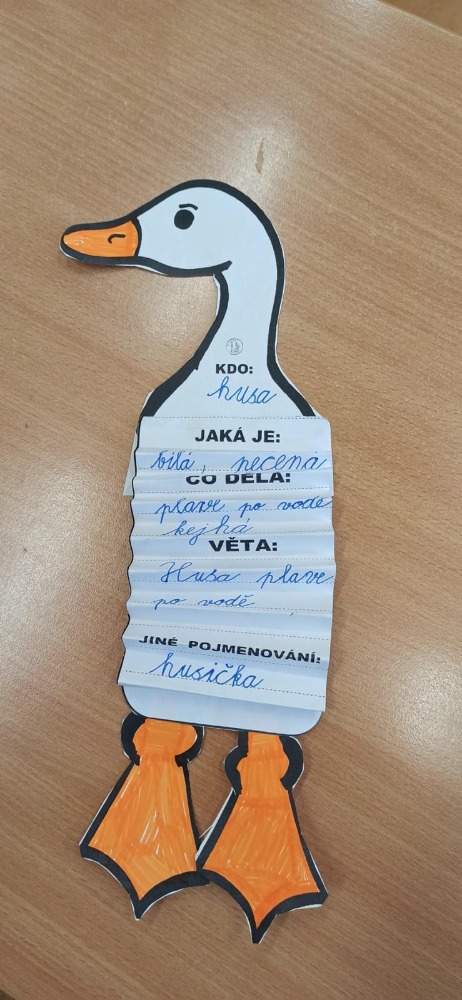 KDO:
husa
JAKÁ JE:
bílá, pečená
CO DĚLÁ:
plave po vodě
kejhá
VĚTA:
Husa plave
po vodě
JINÉ POJMENOVÁNÍ:
husička